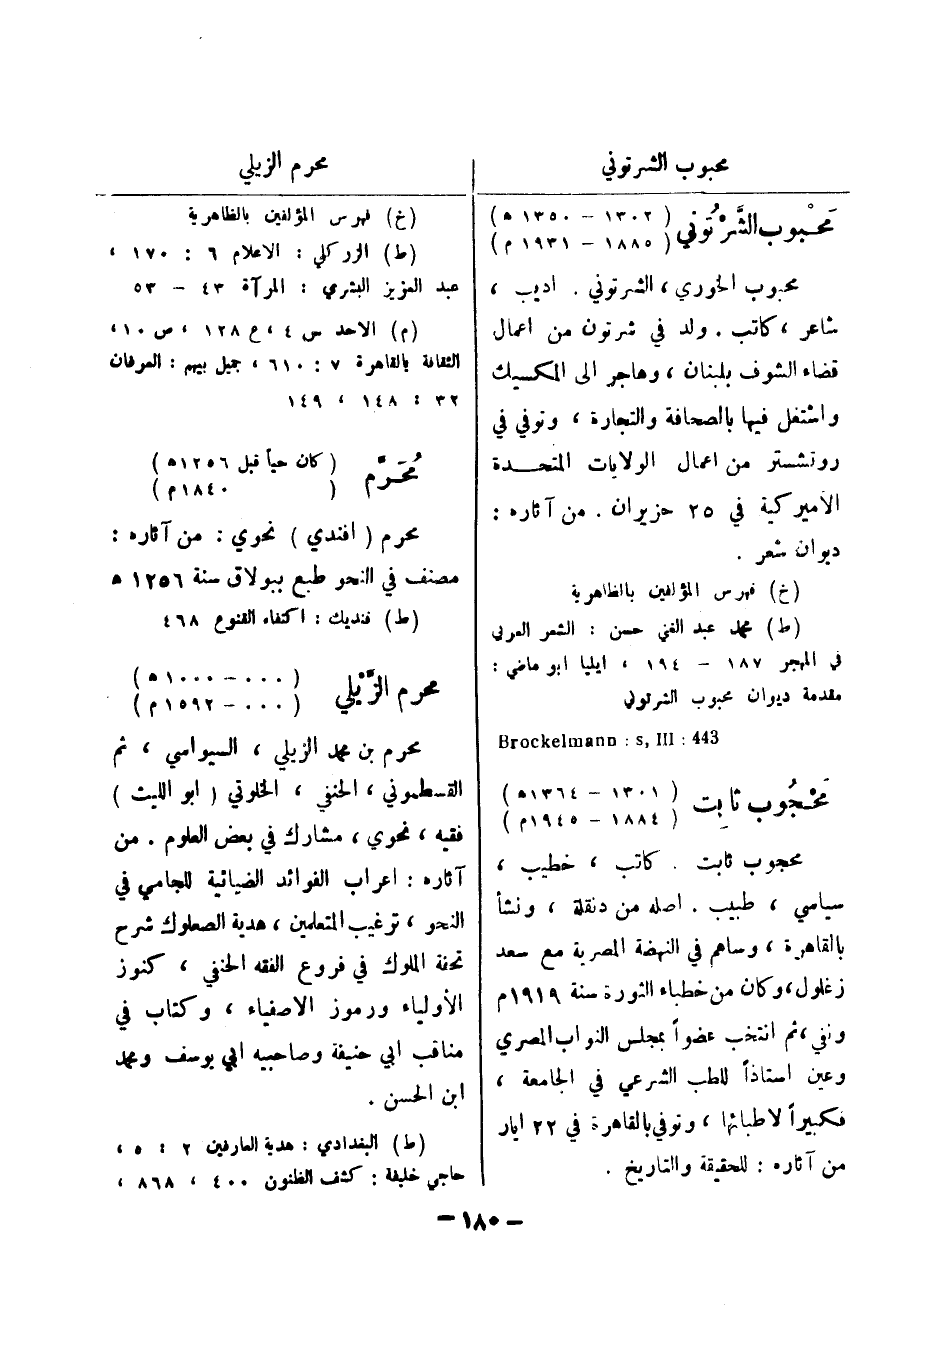 محبوب الشرتوني
محرم الزيلي
مَحْبوب الشَّرْتُوني (١٣٠٢ – ١٣٥٠ ه)
(١٨٨٥ – ١٩٣١ م)
محبوب الخوري، الشرتوني . اديب ،
شاعر ، كاتب . ولد في شرتون من اعمال
قضاء الشوف بلبنان ، وهاجر الى المكسيك
واشتغل فيها بالصحافة والتجارة ، وتوفي في
روتشستر من اعمال الولايات المتحدة
الأميركية في ٢٥ حزيران . من آثاره :
ديوان شعر .
(خ) فهرس المؤلفين بالظاهرية
(ط) محمد عبد الغني حسن : الشعر العربي
في المهجر ١٨٧ – ١٩٤ ، ايليا ابو ماضي :
مقدمة ديوان محبوب الشرتوني
Brockelmann : s, III : 443
مَحْجُوب ثابِت (١٣٠١ – ١٣٦٤ه)
(١٨٨٤ – ١٩٤٥م)
محجوب ثابت . كاتب ، خطيب ،
سياسي ، طبيب . اصله من دنقلة ، ونشأ
بالقاهرة ، وساهم في النهضة المصرية مع سعد
زغلول، وكان من خطباء الثورة سنة ١٩١٩م
ونفي ، ثم انتخب عضواً بمجلس النواب المصري
وعين استاذاً للطب الشرعي في الجامعة ،
فكبيراً لاطبائها ، وتوفي بالقاهرة في ٢٢ ايار
من آثاره : للحقيقة والتاريخ .
(خ) فهرس المؤلفين بالظاهرية
(ط) الزركلي : الاعلام ٦ : ١٧٠ ،
عبد العزيز البشري : المرآة ٤٣ – ٥٣
(م) الاحد س ٤ ، ع ١٢٨ ، ص ١٠ ،
الثقافة بالقاهرة ٧ : ٦١٠ ، جميل بيهم : العرفان
٣٢ : ١٤٨ ، ١٤٩
مُحَرَّم (كان حياً قبل ١٢٥٦ه)
(١٨٤٠م)
محرم (افندي) نحوي : من آثاره :
مصنف في النحو طبع ببولاق سنة ١٢٥٦ ه
(ط) فنديك : اكتفاء القنوع ٤٦٨
محرم الزَّيْلي (٠٠٠ – ١٠٠٠ه)
(٠٠٠ – ١٥٩٢م)
محرم بن محمد الزيلي ، السيواسي ، ثم
القسطموني ، الحنفي ، الخلوتي (ابو الليث)
فقيه ، نحوي ، مشارك في بعض العلوم . من
آثاره : اعراب الفوائد الضيائية للجامي في
النحو ، ترغيب المتعلمين ، هدية الصعلوك شرح
تحفة الملوك في فروع الفقه الحنفي ، كنوز
الأولياء ورموز الاصفياء ، وكتاب في
مناقب ابي حنيفة وصاحبيه ابي يوسف ومحمد
ابن الحسن .
(ط) البغدادي : هدية العارفين ٢ : ٥ ،
حاجي خليفة : كشف الظنون ٤٠٠ ، ٨٦٨ ،
– ١٨٠ –